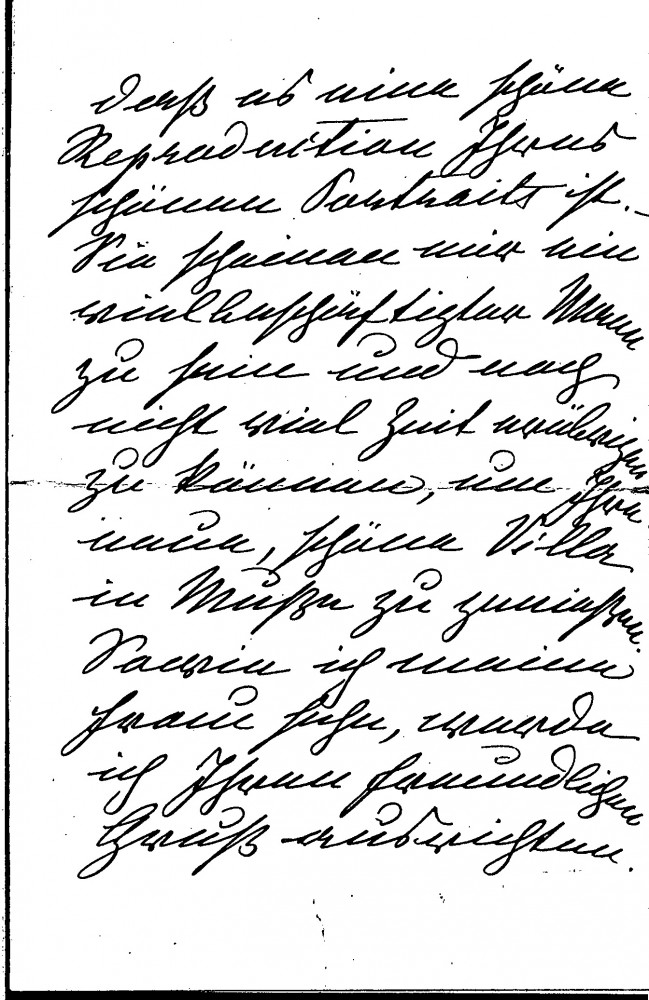 daß es eine schöne
Reproduction Ihres
schönen Portraits ist. –
Sie scheinen mir ein
vielbeschäftigter Mann
zu sein und noch
nicht viel Zeit erübrigen
zu können, um Ihre
neue, schöne Villa
in Muße zu genießen.
Sowie ich meine
Frau sehe, werde
ich Ihren freundlichen
Gruß ausrichten.